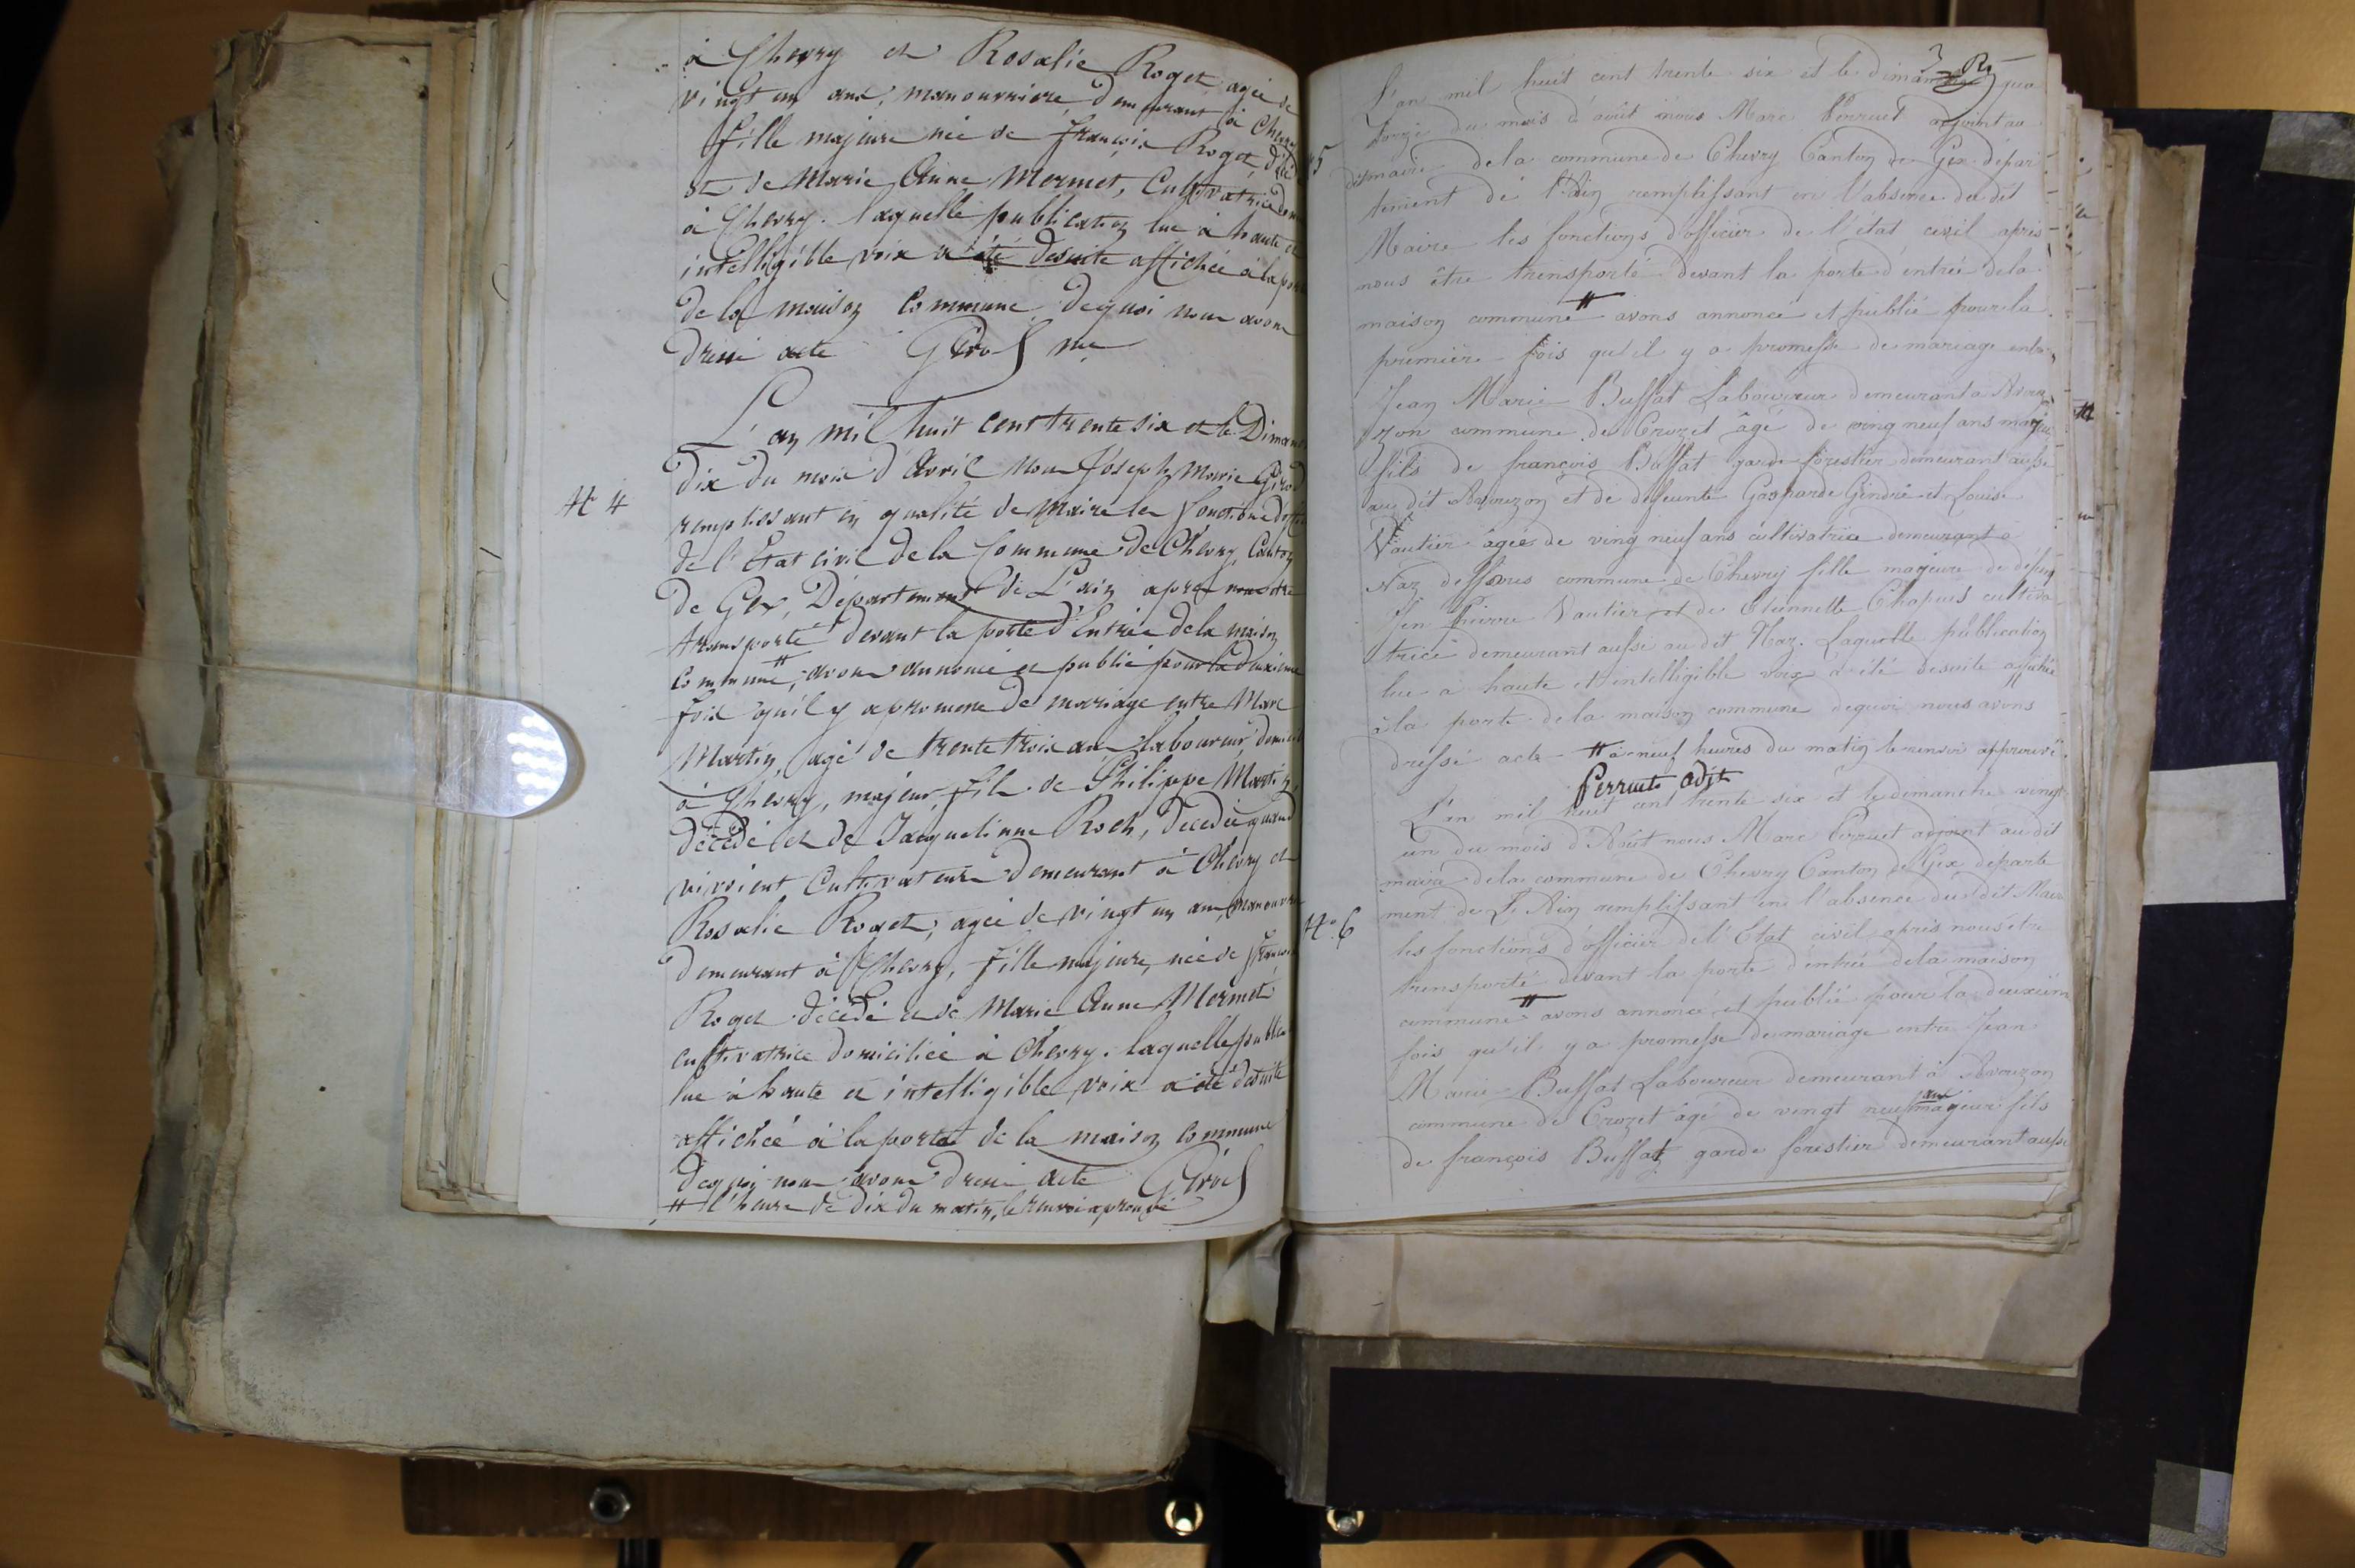 à Chevry et Rosalie Roget agée de
vingt un ans, manouvriere demeurant à Chevry
fille majeure née de françois Roget décédé
et de Marie Anne Mermet, Cultivatrice
à Chevry. laquelle publication lue à haute et
intelligible voix a été desuite affichée à la porte
de la maison Commune dequoi nous avons
dressé acte Girod me
L'an mil huit cent trente six et le Dimanche
dix du mois d'Avril nous Joseph Marie Girod
N° 4
remplissant en qualité de Maire les fonctions
de l'État civil de la Commune de Chevry, Canton
de Gex, Département de L'ain après nous être
transporté devant la porte d'Entrée de la maison
commune #, avons annoncé et publié pour la deuxieme
fois qu'il y a promesse de mariage entre Marc
Martin, agé de trente trois ans laboureur
à Chevry, majeur, fils de Philippe Martin
décédé et de Jacquelinne Roch, décédée quand
vivoient Cultivateurs demeurant à Chevry et
Rosalie Roget, agée de vingt un ans, manouvriere
demeurant à Chevry, fille majeure, née de françois
Roget décédé et de Marie Anne Mermet
cultivatrice domiciliée à Chevry. laquelle
lue à haute et intelligible voix a été desuite
affichée à la porte de la maison Commune
dequoi nous avons dressé acte Girod
# l'heure de dix du matin, le renvoi aprouvé
L'an mil huit cent trente six et le dimanche qua
torze du mois d'août nous Marc Perruet adjoint au
5
dit maire dela commune de Chevry Canton de Gex dépar
tement de l'Ain remplissant en l'absence du dit
Maire les fonctions d'officier de l'état civil après
nous être transporté devant la porte d'entrée dela
maison commune # avons annoncé et publié pour la
première fois qu'il y a promesse de mariage entre
Jean Marie Buffat Laboureur demeurant a Avou
zon commune de Crozet âgé de ving neuf ans majeur
fils de françois Buffat garde forestier demeurant aussi
au dit Avouzon et de défeunte Gasparde Gindre et Louise
Vautier âgée de ving neuf ans cultivatrice demeurant à
Naz dessous commune de Chevry fille majeure de
Pierre Vautier et de Etiennette Chapuis cultiva
trice demeurant aussi au dit Naz. Laquelle publication
lue a haute et intelligible voix a été desuite affichée
à la porte dela maison commune dequoi nous avons
dressé acte # à neuf heures du matin le renvoi approuvé
Perruet adjt
L'an mil huit cent trente six et le dimanche vingt
un du mois d'Août nous Marc Perruet adjoint au dit
maire dela commune de Chevry Canton de Gex departe
ment de L'Ain remplissant en l'absence du dit Maire
N° 6
les fonctions d'officier de l'Etat civil après nous etre
transporté devant la porte d'entrée dela maison
commune # avons annoncé et publié pour la deuxiém
fois qu'il y a promesse de mariage entre Jean
Marie Buffat Laboureur demeurant à Avouzon
commune de Crozet âgé de vingt neuf ans majeur fils
de françois Buffat garde forestier demeurant aussi